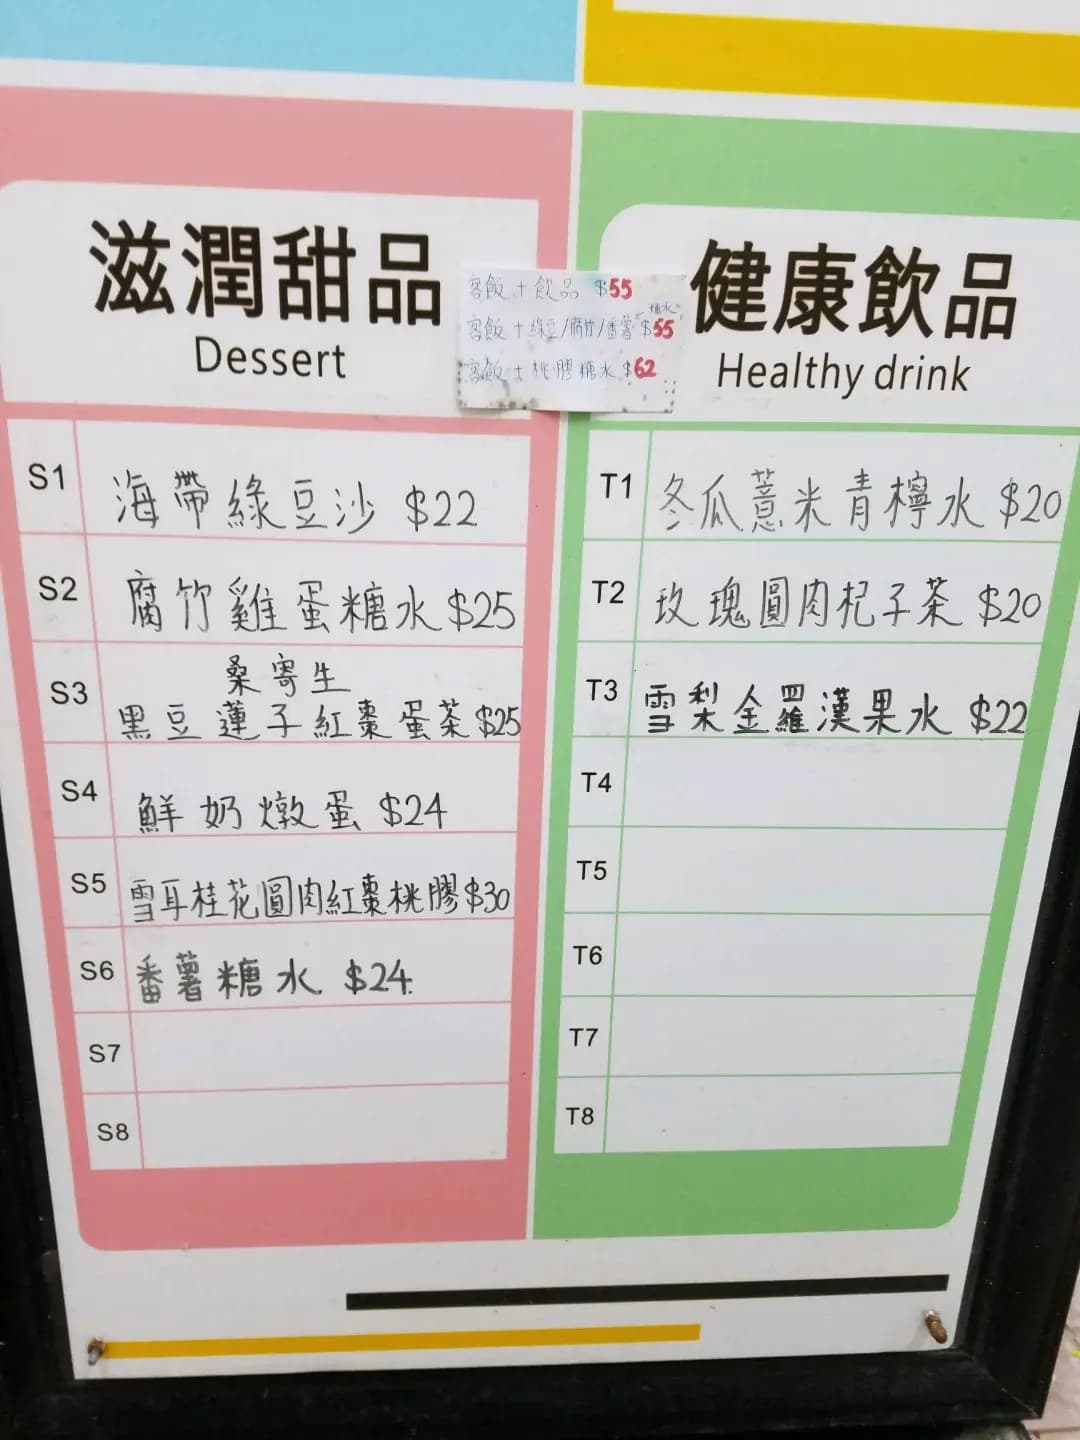 滋潤甜品
Dessert
客飯 + 飲品 $55
客飯 + 綠豆/腐竹/番薯 糖水 $55
客飯 + 桃膠糖水 $62
健康飲品
Healthy drink
S1 海帶綠豆沙 $22
S2 腐竹雞蛋糖水 $25
S3 桑寄生
黑豆蓮子紅棗蛋茶 $25
S4 鮮奶燉蛋 $24
S5 雪耳桂花圓肉紅棗桃膠 $30
S6 番薯糖水 $24
S7
S8
T1 冬瓜薏米青檸水 $20
T2 玫瑰圓肉杞子茶 $20
T3 雪梨金羅漢果水 $22
T4
T5
T6
T7
T8